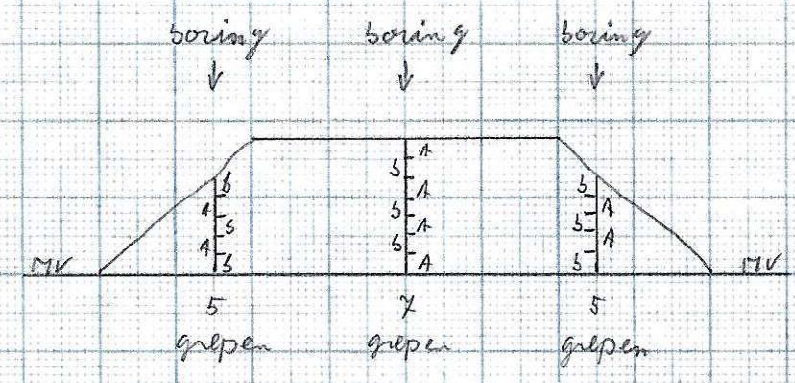 boring boring boring
b A b A b
A b A b A b A
b A b A b
MV MV
5 7 5
grepen grepen grepen